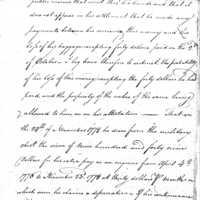 public monies that went thro his hands and that it
does not appear in his settlement that he made any
payments between his receiving this money and his
loss of his baggage excepting forty dollars, paid on the 3d
of October. I beg leave therefore to submit the probability
of his loss of this money excepting the forty dollars he had
paid, and the propriety of the value of the same being
allowed to him on
That on
the 28th of November 1778 he drew from the military
chest the sum of two hundred and forty nine
Dollars for his extra pay as an ensign from April 4th
1778 to November 23d 1778 at thirty dollars Pr Month on
which sum he claims a depreciation. If his